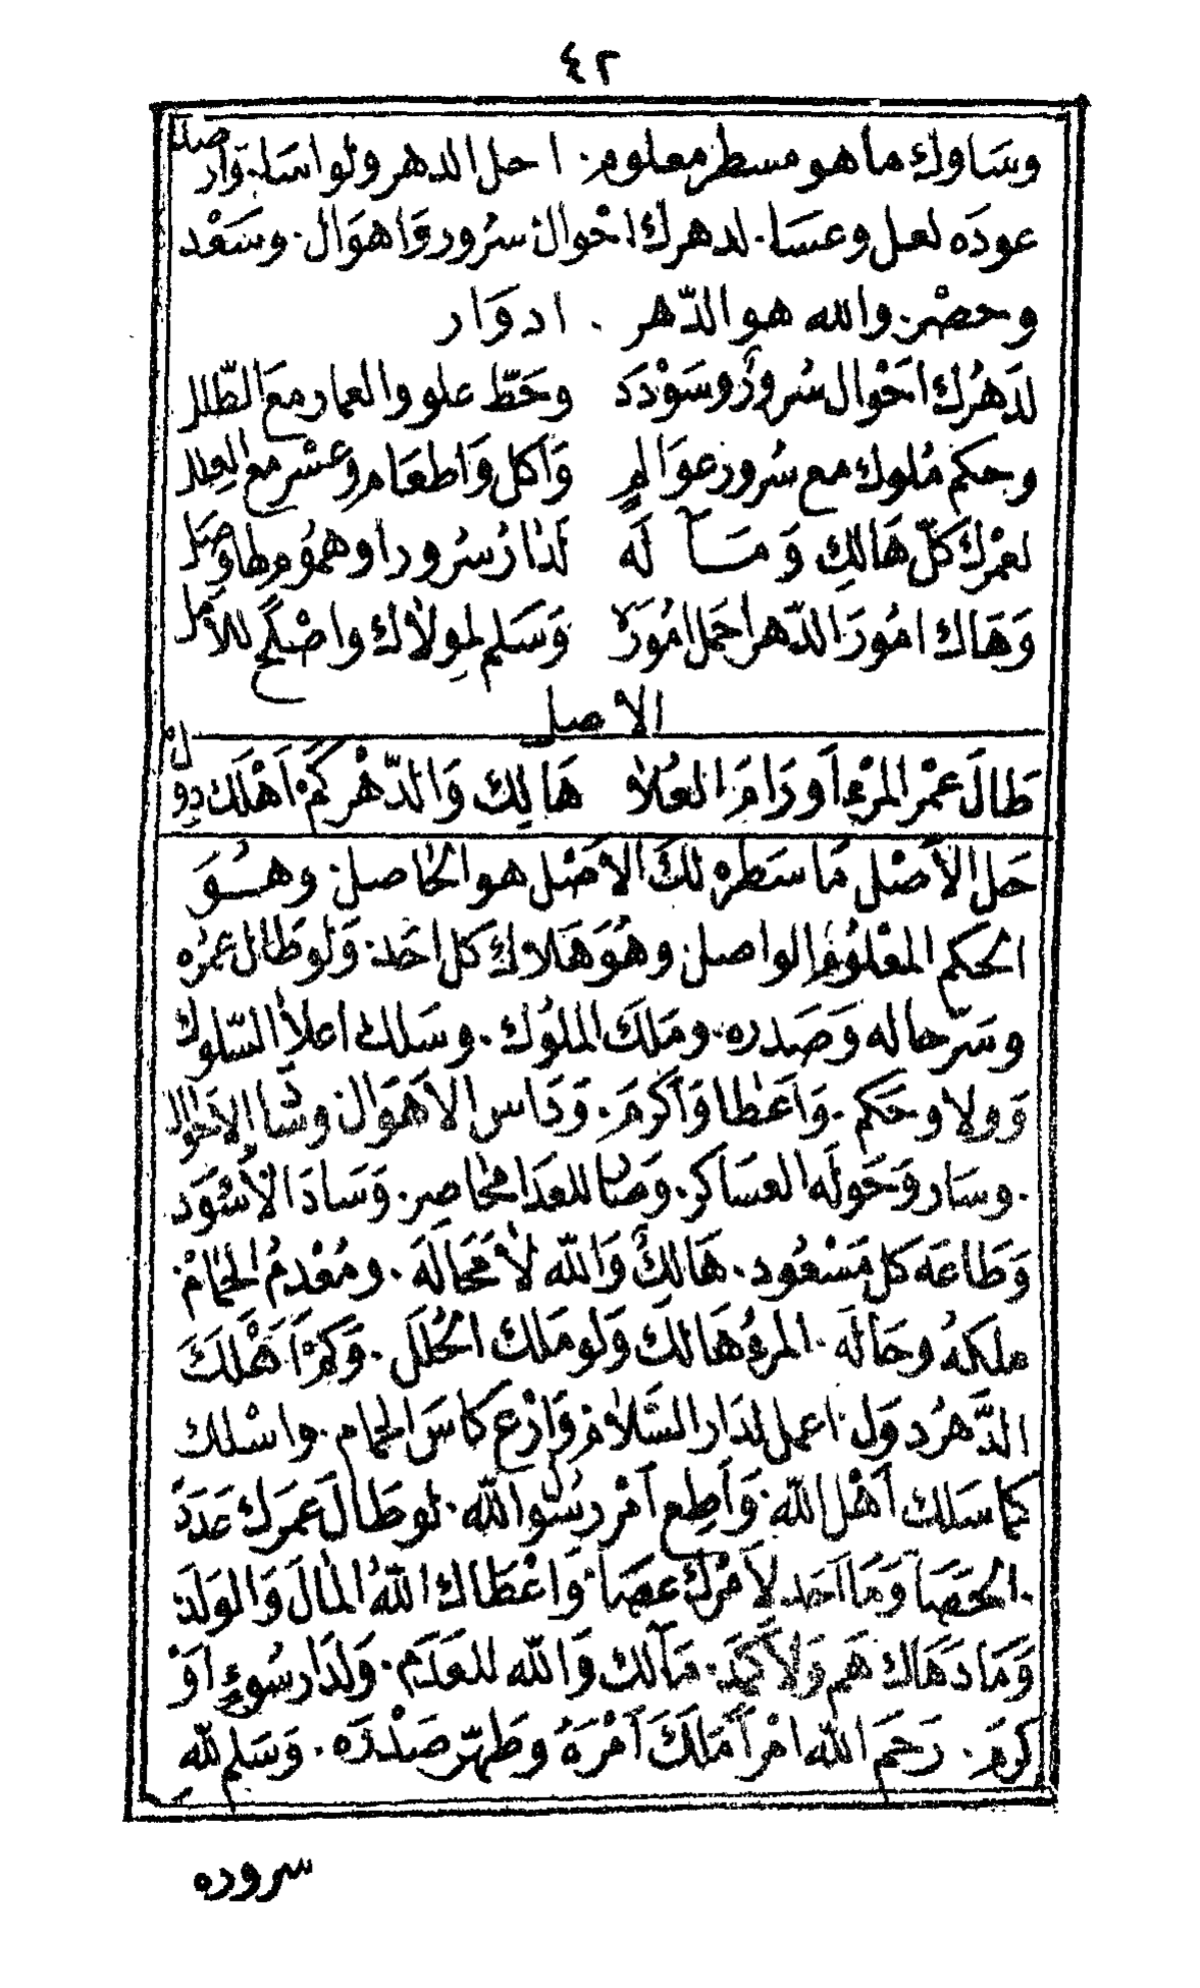 ٤٢
وسَاوك ما هو مسطر معلوم. احل الدهر ولو اسا. وار صله
عودَه لعل وعسَا. لدهرك احْوال سرُور وَاهوَال. وسَعْد
وحصْر. والله هو الدّهر . ادوَار
لدَهرُك احَوال سُرورٌ وسَوْدَد وحَطّ علو والعمار معَ الطّلل
وحكم مُلوك مع سُرور عوَالمٍ وَاكل وَاطعَام وعسْر مع العِلل
لعمْركَ كلّ هَالك وَمَسآ لَه لدَار سُرور او همُوم طا وصل
وَهَاك امُورَ الدّهر اجمَل امُورَهْ وَسَلم لمِولاك واصْلح للأمل
الاصل
طَالَ عمْر المَرْءِ اَو رَامَ العُلاَ هَالِك وَالدّهْر كَمْ اَهْلَك دوَلْ
حَل الأصْل مَا سَطره لكَ الاصْل هو الحَاصل. وهُـوَ
الحَكم المعْلُوم الواصل وهُوَ هَلاك كل احَد. وَلو طَال عمرُه
وسَرّ حاله وَصَدره. ومَلكَ الملُوك. وسَلك اعلاَ السّلوك
وَولا وحَكم. وَاَعَطا وَاَكرَمَ. وَدَاس الاَهَوَال وسَّا الاَحَوال
. وسَار وَحَولَه العسَاكر. وَصَا للعدَا محَاصر. وَسَادَ الأسْوَد
وَطَاعَه كل مَسْعُود. هَالكٌ وَاللّه لاَ محَالَهَ. ومُعْدمُ الحمَامْ
ملكهُ وحَالَه. المرءُ هَالك وَلو مَلك الحُلَل. وَكمْ اَهْلَكَ
الدَّهرُ دوَل اعمل لدَار السَّلاَم وَارْع كاسَ الحِمام. واسْلك
كما سَلك اَهْل اللّه. وَاَطِع اَمْر رسُول اللّه. لو طَالَ عمَرك عَدَدَ
. الحَصَا وَمَا اَحَد لاَمْرِك عصَا. وَاعْطَاك اللّهُ المَالَ وَالوَلدَ
وَمَا دَهَاك هَم وَلاَ كمَد. مَآلك وَاللّه للعَدَم. وَلدَار سُوءٍ اَوْ
كرَمَ. رَحمَ اللّه امْرأً مَلكَ اَمْرَهُ وَطَهّر صَدْرَه. وَسَلم للّهِ
سروره